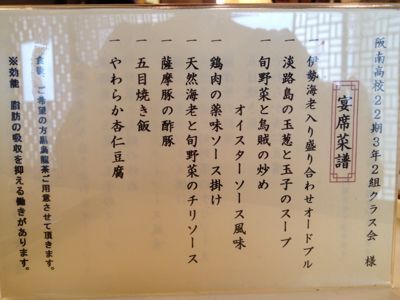 阪南高校22期3年2組クラス会 様
宴席菜譜
一 伊勢海老入り盛り合わせオードブル
一 淡路島の玉葱と玉子のスープ
一 旬野菜と烏賊の炒め
オイスターソース風味
一 鶏肉の薬味ソース掛け
一 天然海老と旬野菜のチリソース
一 薩摩豚の酢豚
一 五目焼き飯
一 やわらか杏仁豆腐
一 食後、ご希望の方黒烏龍茶ご用意させて頂きます。
※効能 脂肪の吸収を抑える働きがあります。